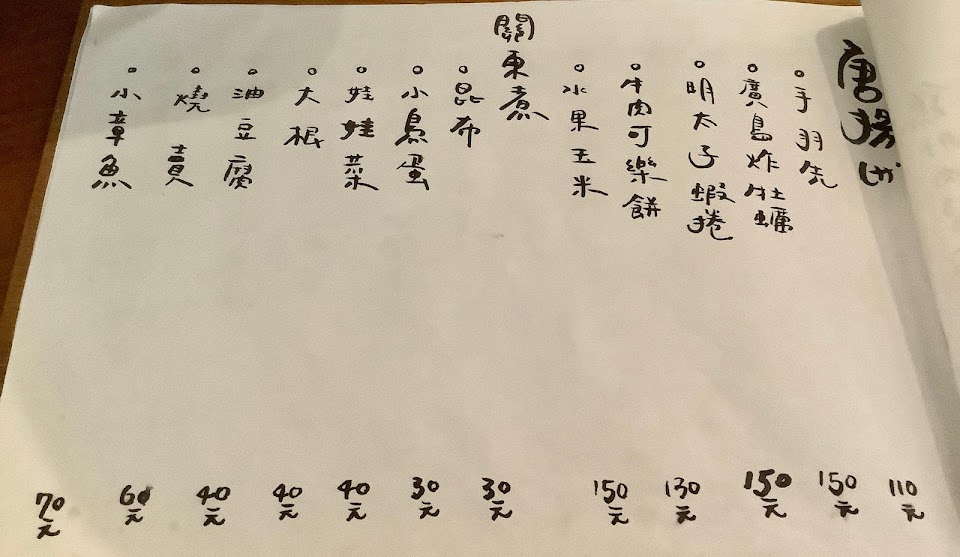 唐揚げ
。手羽先 110元
。廣島炸牡蠣 150元
。明太子蝦捲 150元
。牛肉可樂餅 130元
。水果玉米 150元
關東煮
。昆布 30元
。小鳥蛋 30元
。娃娃菜 40元
。大根 40元
。油豆腐 40元
。燒賣 60元
。小章魚 70元